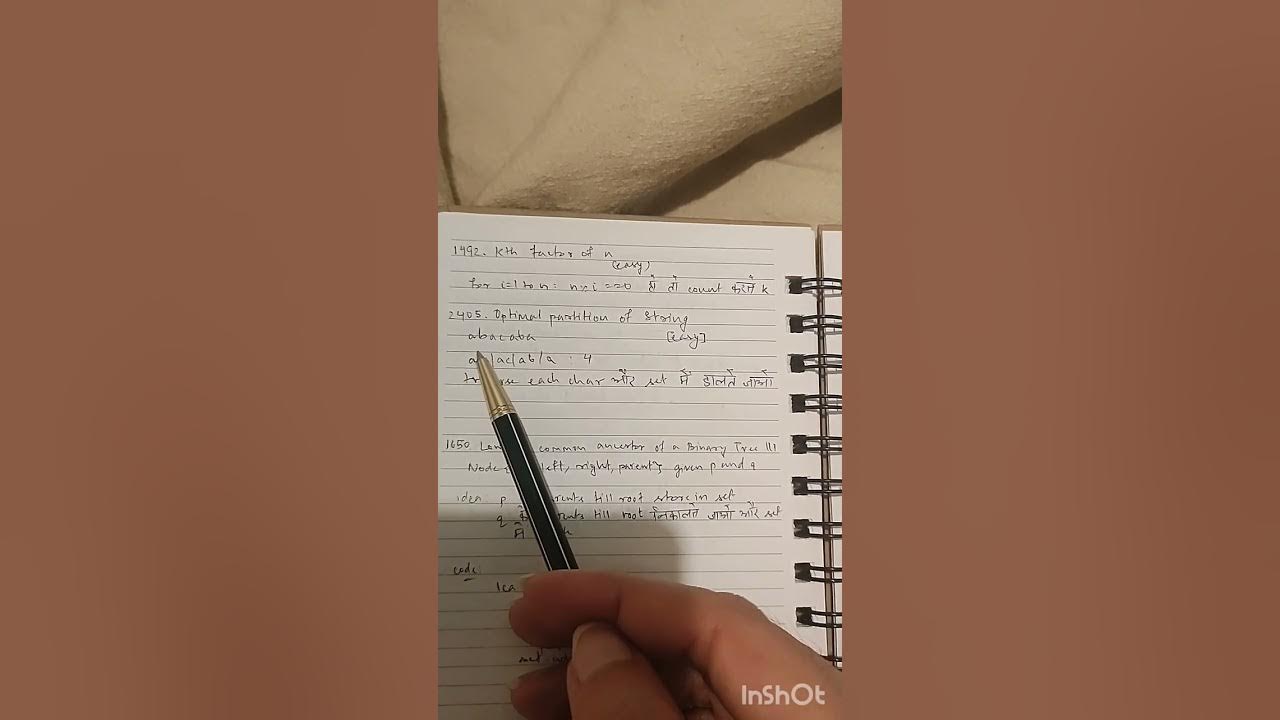 1492. Kth factor of n
(easy)
for i=1 to n: n%i==0 हो तो count करते k
2405. Optimal partition of string
abacaba [easy]
|ac|ab|a : 4
each char और set में डालते जाओ
1650. common ancestor of a Binary Tree III
Node left, right, parent, given p and q
idea p till root store in set
q till root निकालते जाओ और set
में
code:
InShOt